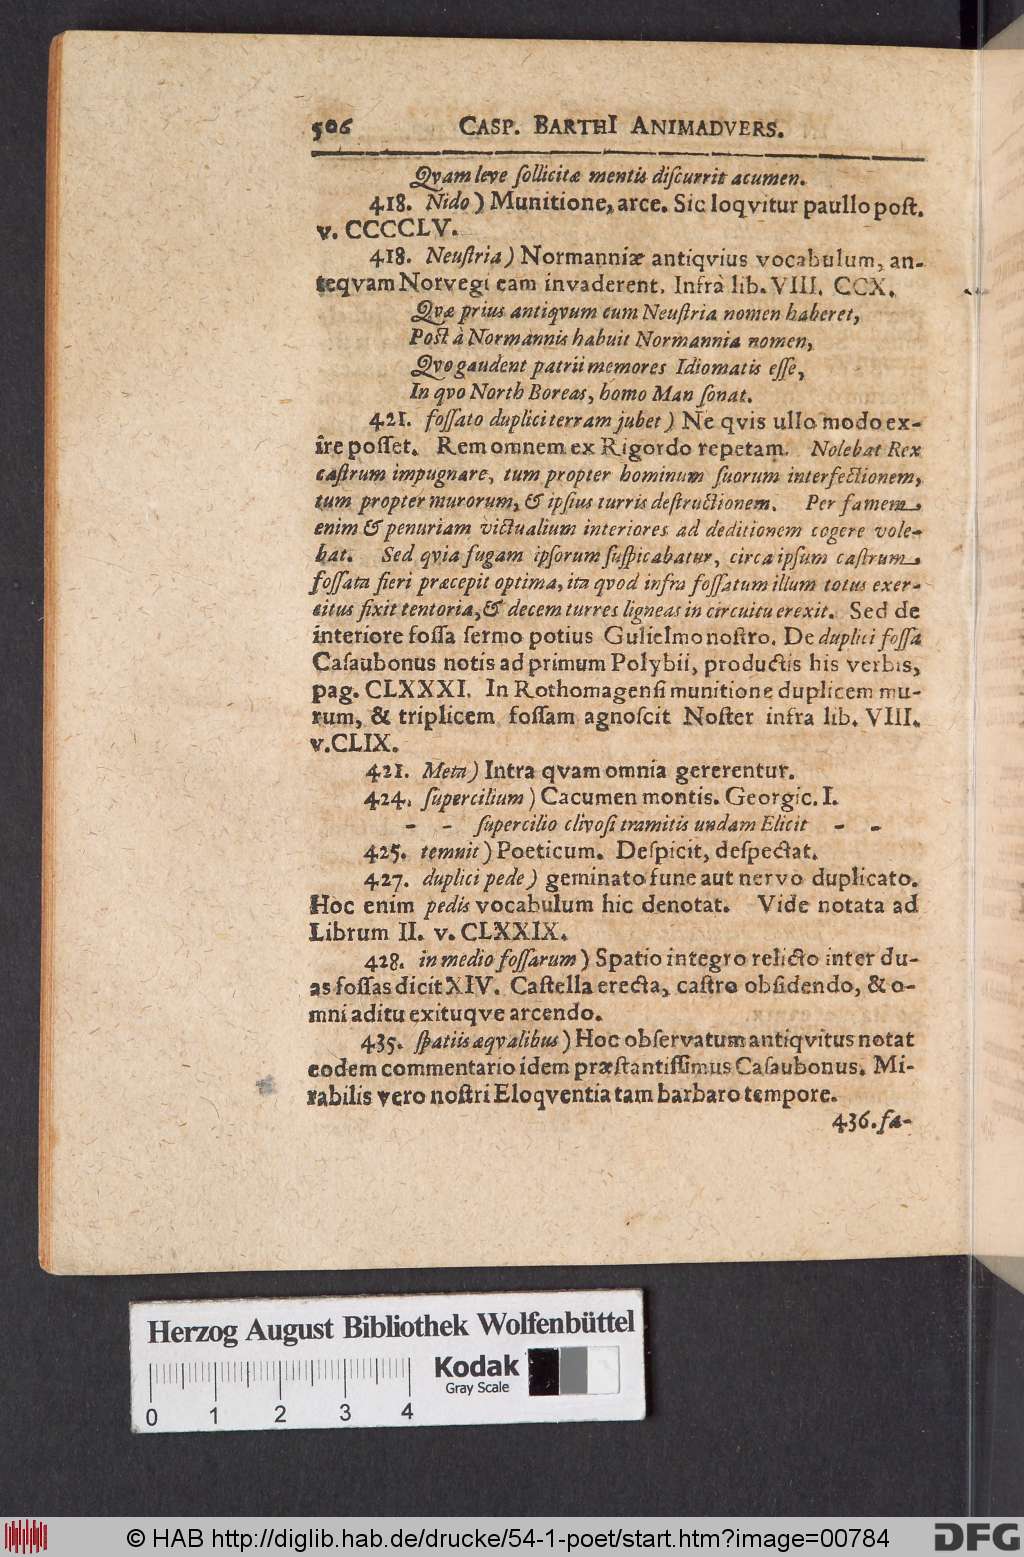 506 CASP. BARTHI ANIMADVERS.
Qvam leve ſollicitæ mentis diſcurrit acumen.
418. Nido) Munitione, arce. Sic loqvitur paullo poſt.
v. CCCCLV.
418. Neuſtria) Normanniæ antiqvius vocabulum, an-
teqvam Norvegi eam invaderent. Infrà lib. VIII. CCX.
Qvæ prius antiqvum cum Neuſtria nomen haberet,
Poſt à Normannis habuit Normannia nomen,
Qvo gaudent patrii memores Idiomatis eſſe,
In qvo North Boreas, homo Man ſonat.
421. foſſato duplici terram jubet) Ne qvis ullo modo ex-
îre poſſet. Rem omnem ex Rigordo repetam. Nolebat Rex
caſtrum impugnare, tum propter hominum ſuorum interfectionem,
tum propter murorum, & ipſius turris deſtructionem. Per famem
enim & penuriam victualium interiores ad deditionem cogere vole-
bat. Sed qvia fugam ipſorum ſuſpicabatur, circa ipſum caſtrum
foſſata fieri præcepit optima, ita qvod infra foſſatum illum totus exer-
citus fixit tentoria, & decem turres ligneas in circuitu erexit. Sed de
interiore foſſa ſermo potius Gulielmo noſtro. De duplici foſſa
Caſaubonus notis ad primum Polybii, productis his verbis,
pag. CLXXXI. In Rothomagenſi munitione duplicem mu-
rum, & triplicem foſſam agnoſcit Noſter infra lib. VIII.
v. CLIX.
421. Meta) Intra qvam omnia gererentur.
424. ſupercilium) Cacumen montis. Georgic. I.
- - ſupercilio clivoſi tramitis undam Elicit - -
425. temnit) Poeticum. Deſpicit, deſpectat.
427. duplici pede) geminato fune aut nervo duplicato.
Hoc enim pedis vocabulum hic denotat. Vide notata ad
Librum II. v. CLXXIX.
428. in medio foſſarum) Spatio integro relicto inter du-
as foſſas dicit XIV. Caſtella erecta, caſtro obſidendo, & o-
mni aditu exituqve arcendo.
435. ſpatiis æqvalibus) Hoc obſervatum antiqvitus notat
eodem commentario idem præſtantiſſimus Caſaubonus. Mi-
rabilis vero noſtri Eloqventia tam barbaro tempore.
436. fa-
Herzog August Bibliothek Wolfenbüttel
Kodak
Gray Scale
0 1 2 3 4
© HAB http://diglib.hab.de/drucke/54-1-poet/start.htm?image=00784
DFG